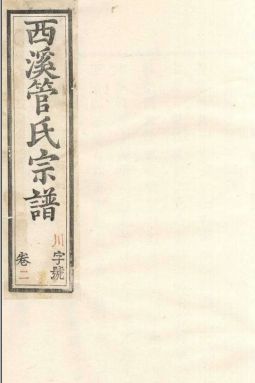 西溪管氏宗譜
川字號
卷二